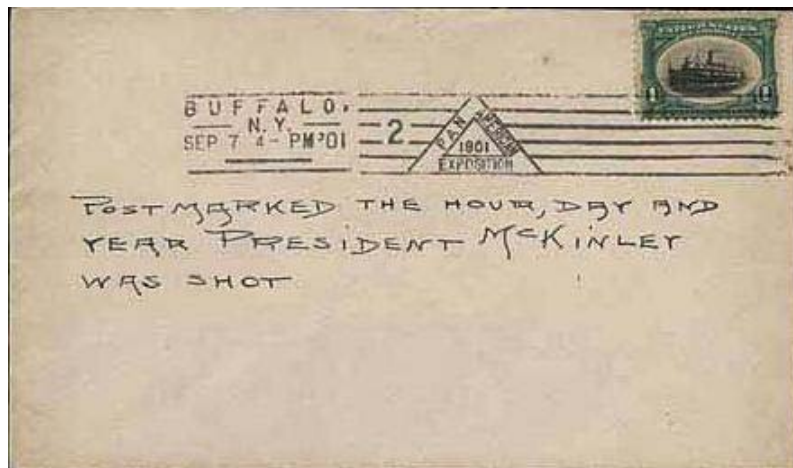 UNITED STATES
1 1
BUFFALO,
N.Y.
SEP 7 4-PM '01
2
PAN AMERICAN
1901
EXPOSITION
POSTMARKED THE HOUR, DAY AND
YEAR PRESIDENT McKINLEY
WAS SHOT